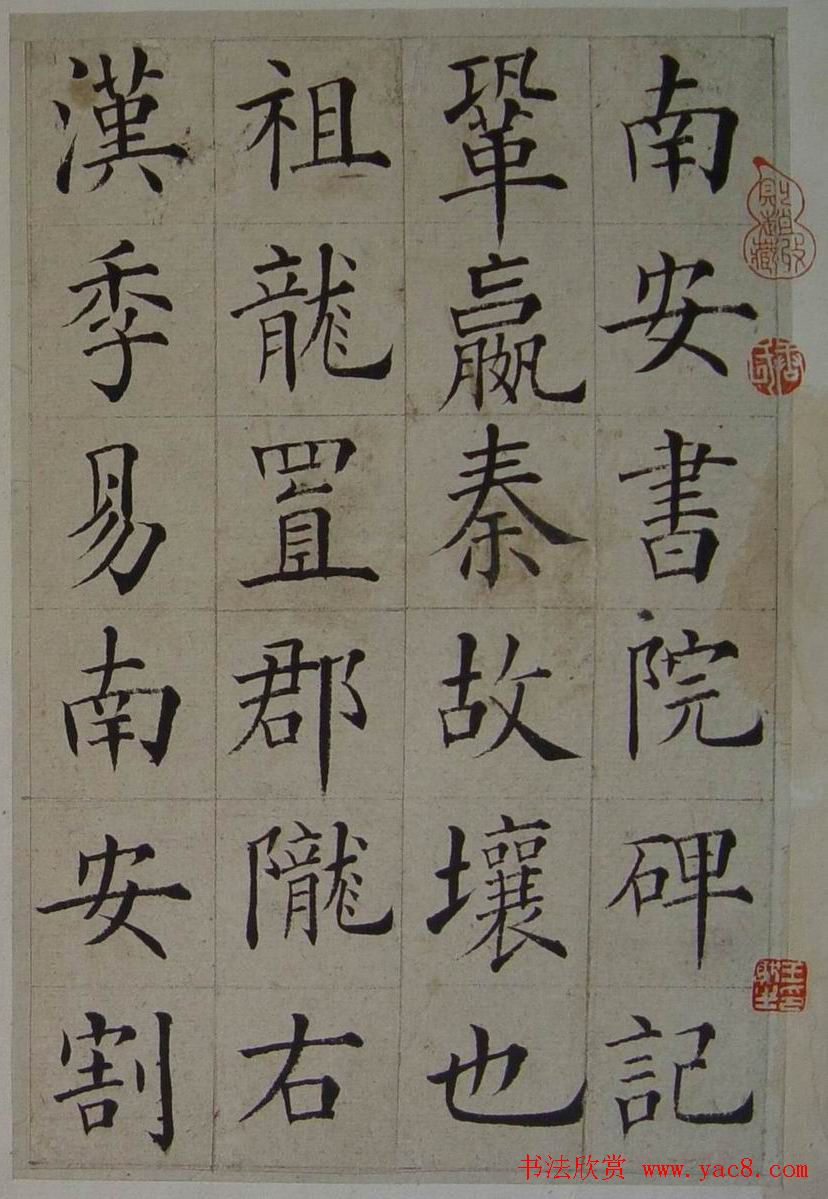 南安書院碑記
鞏嬴秦故壤也
祖龍置郡隴右
漢季易南安割
书法欣赏 www.yac8.com